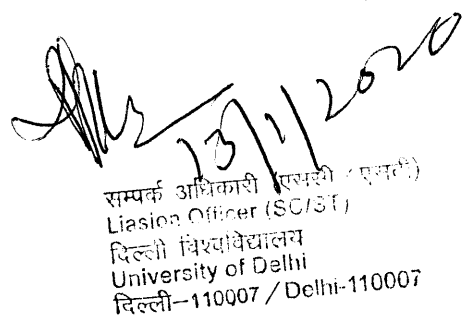 13/1/2020
सम्पर्क अधिकारी (एससी / एसटी)
Liasion Officer (SC/ST)
दिल्ली विश्वविद्यालय
University of Delhi
दिल्ली-110007 / Delhi-110007